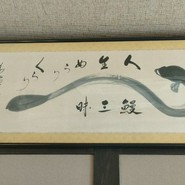 人生ぬらりくらり
鰻三昧